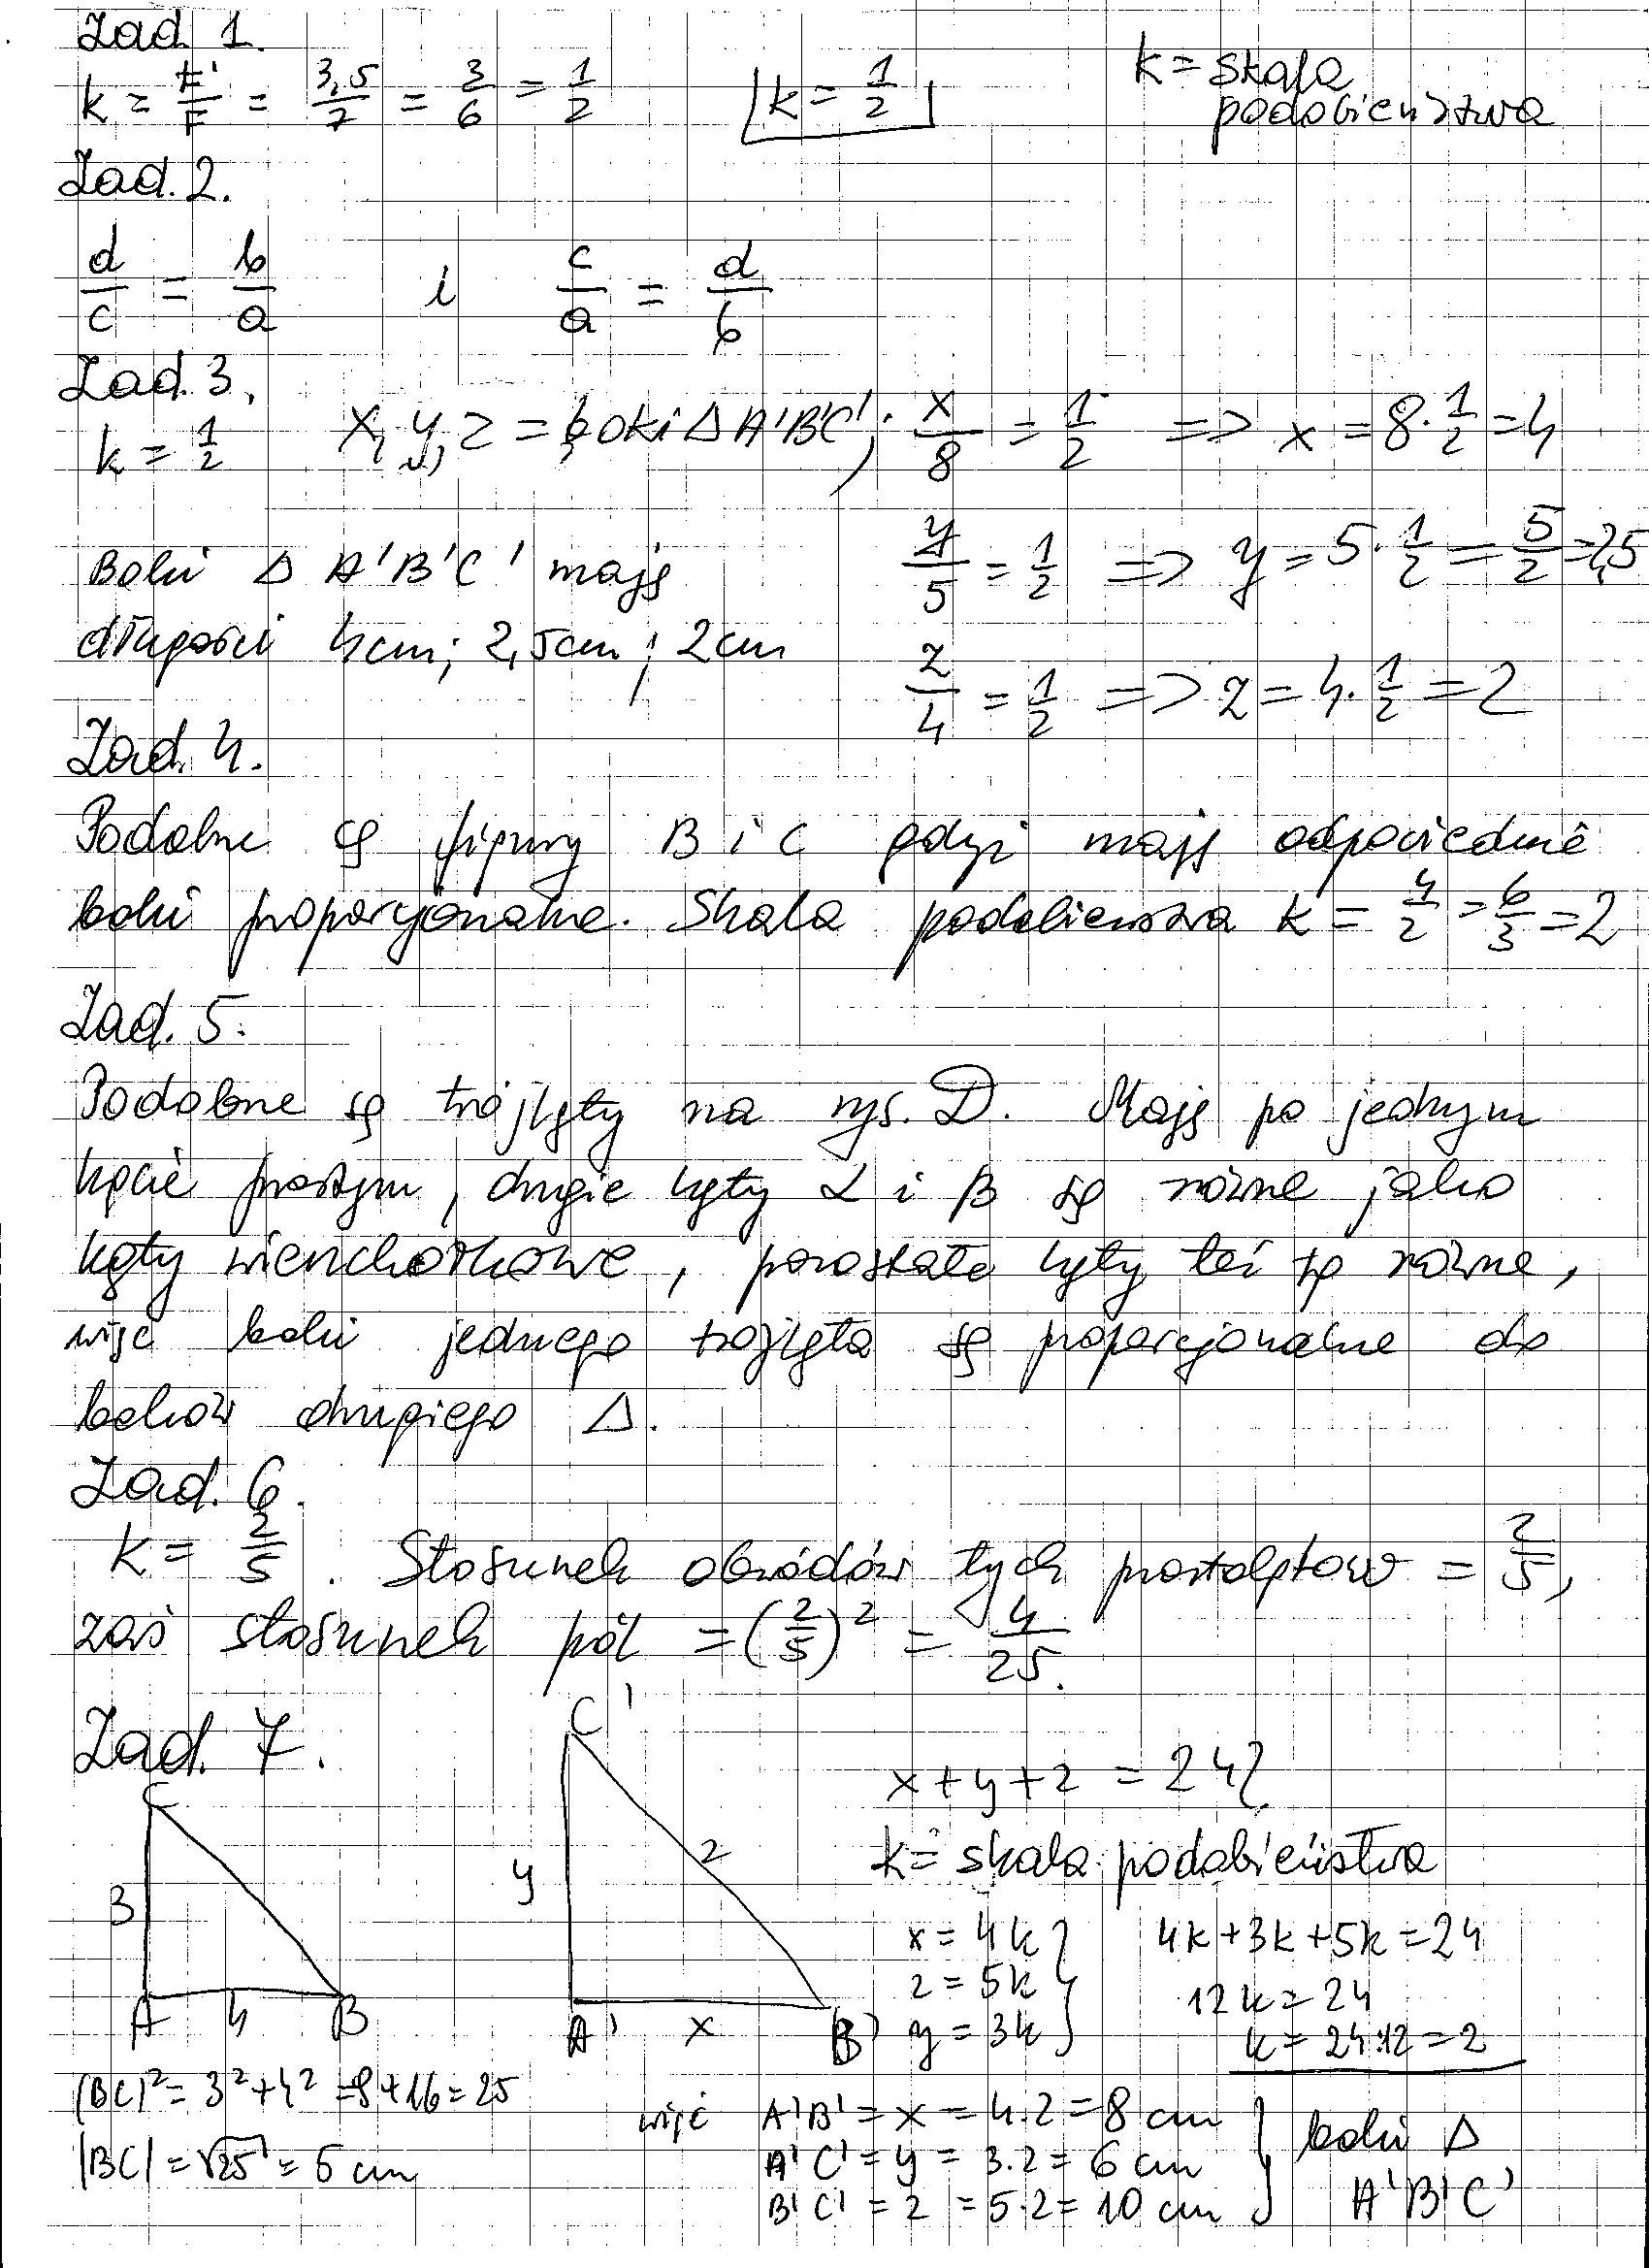 Zad 1.
k = F'/F = 3,5/7 = 3/6 = 1/2   k = 1/2   k = skala
podobieństwa
Zad. 2.
d/c = b/a   i   c/a = d/b
Zad 3.
k = 1/2   x, y, z = boki Δ A'B'C'; x/8 = 1/2 => x = 8·1/2 = 4
Boki Δ A'B'C' mają   y/5 = 1/2 => y = 5·1/2 = 5/2 = 2,5
długości 4cm; 2,5cm; 2cm   z/4 = 1/2 => z = 4·1/2 = 2
Zad. 4.
Podobne są figury B i C gdyż mają odpowiednie
boki proporcjonalne. Skala podobieństwa k = 4/2 = 6/3 = 2
Zad. 5.
Podobne są trójkąty na rys. D. Mają po jednym
kącie prostym, drugie kąty α i β są równe jako
kąty wierzchołkowe, pozostałe kąty też są równe,
więc boki jednego trójkąta są proporcjonalne do
boków drugiego Δ.
Zad. 6.
k = 2/5. Stosunek obwodów tych prostokątów = 2/5,
zaś stosunek pól = (2/5)² = 4/25.
Zad. 7.
C
3
A 4 B
C'
y z
A' x B'
x + y + z = 24
k = skala podobieństwa
x = 4k   4k + 3k + 5k = 24
z = 5k   12k = 24
y = 3k   k = 24:12 = 2
|BC|² = 3² + 4² = 9 + 16 = 25
|BC| = √25 = 5 cm
więc A'B' = x = 4·2 = 8 cm
A'C' = y = 3·2 = 6 cm
B'C' = z = 5·2 = 10 cm
boki Δ
A'B'C'